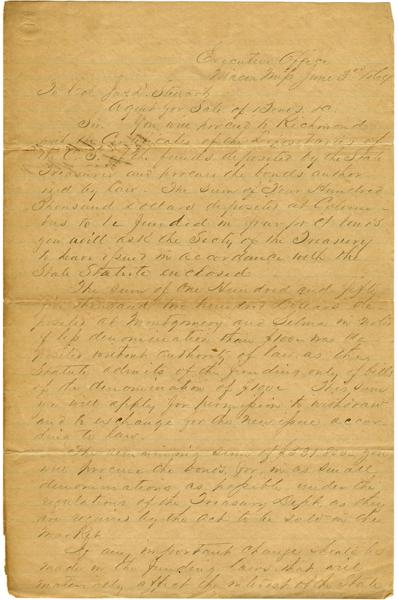 Executive Office
Macon Miss June 3rd 1864
To Col Jas D. Stewart
Agent for Sale of Bonds &c
Sir You will proceed to Richmond
with Certificates of the Depositaries of
the C. S. of the funds deposited by the State
Treasurer and procure the bonds author
ized by law. The Sum of Four Hundred
Thousand Dollars deposited at Colum-
bus to be funded in four per ct bonds
you will ask the Secty of the Treasury
to have issued in accordance with the
State Statute enclosed
The sum of One Hundred and fifty
thousand Hundred Dollars de
posited at Montgomery and Selma in notes
of less denomination than $100 was de
posited without authority of law as the
Statute admits of the funding only of bills
of the denomination of $100. This sum
you will apply for permission to withdraw
and to exchange for the new issue accor-
ding to law.
The remaining sum of you
will procure the bonds for, in as small
denominations as possible under the
regulations of the Treasury Dept. as they
are required by the Act to be sold in the
market.
If any important change should be
made in the funding laws that will
materially affect the interest of the State